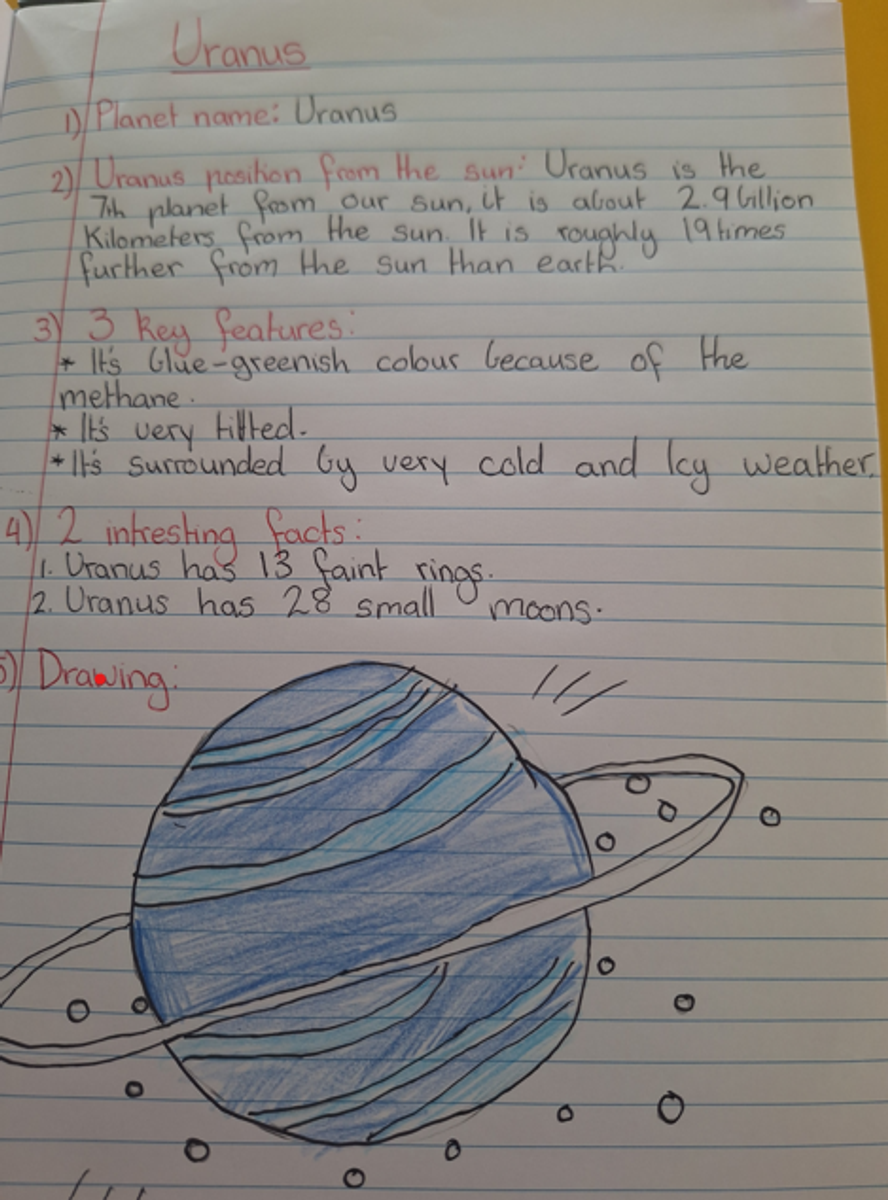 Uranus
1) Planet name: Uranus
2) Uranus position from the sun: Uranus is the
7th planet from our sun, it is about 2.9 billion
Kilometers from the sun. It is roughly 19 times
further from the sun than earth.
3) 3 key features:
* It's blue-greenish colour because of the
methane.
* It's very tilted.
* It's surrounded by very cold and Icy weather.
4) 2 intresting facts:
1. Uranus has 13 faint rings.
2. Uranus has 28 small moons.
5) Drawing: